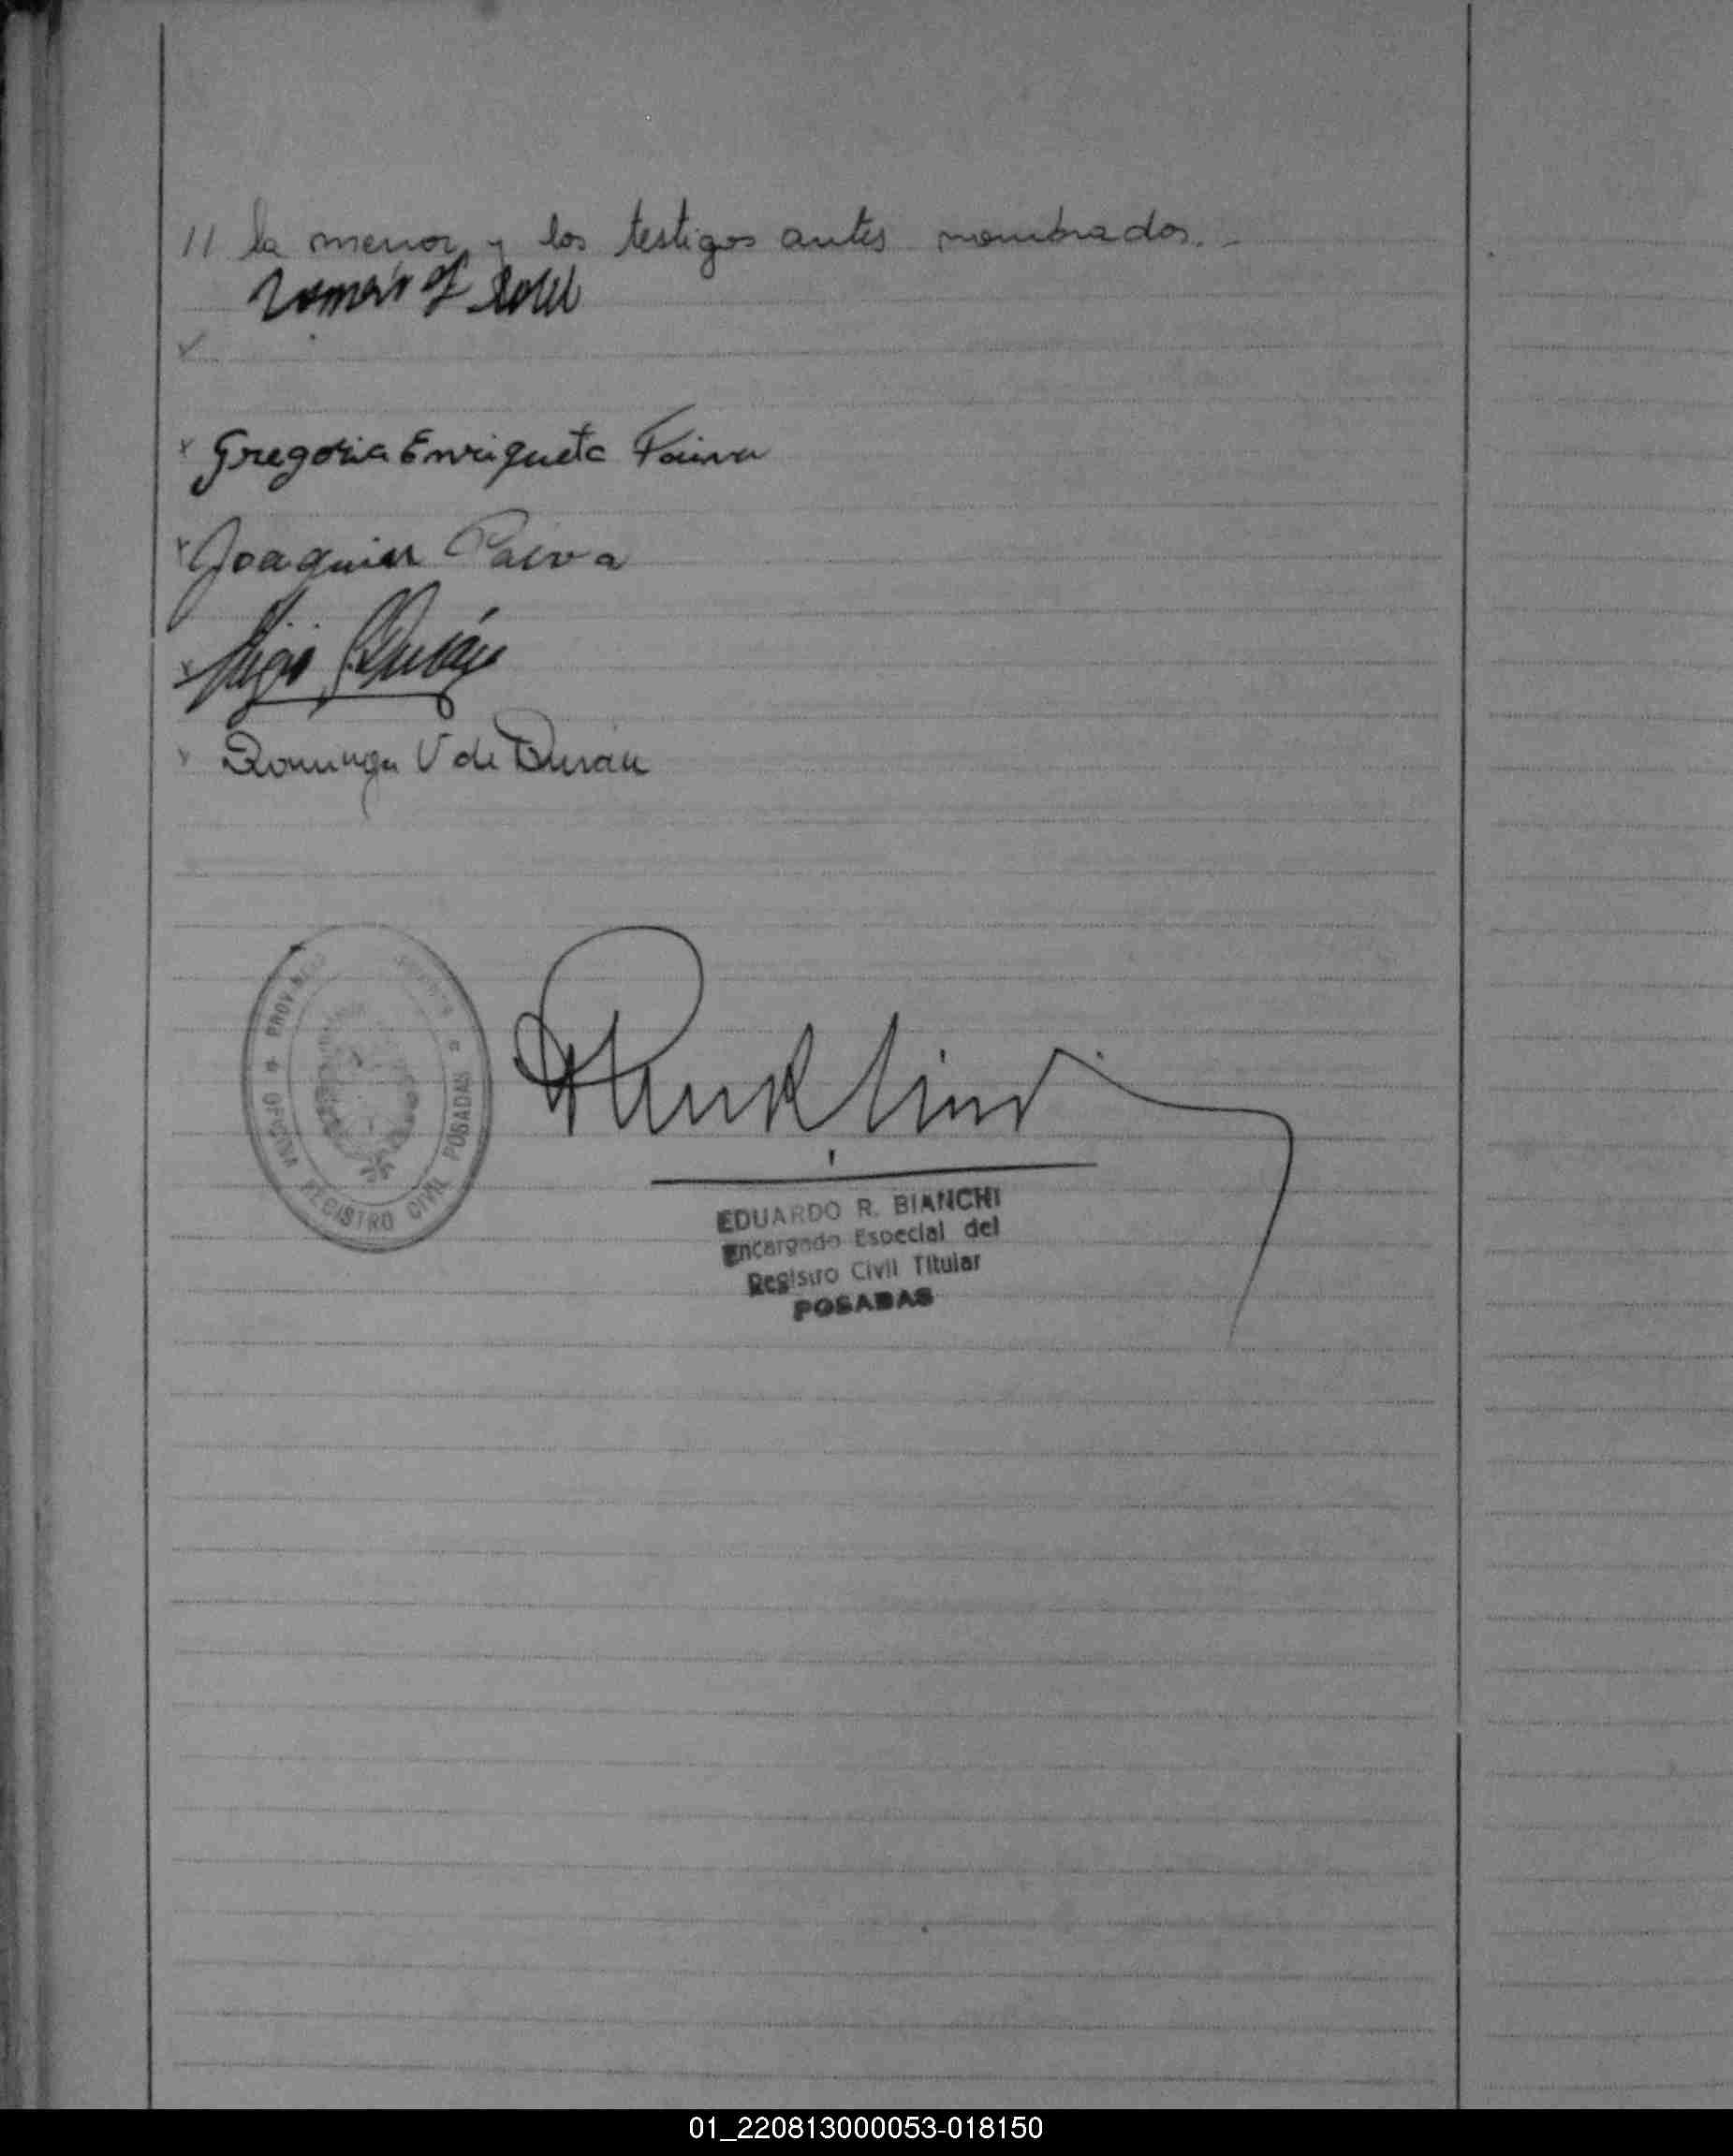 // la menor, y los testigos antes nombrados. -
Gregoria Enriqueta
Joaquin Paiva
Durán
Dominga V de Durán
PROV
OFICINA REGISTRO CIVIL POSADAS
EDUARDO R. BIANCHI
Encargado Especial del
Registro Civil Titular
POSADAS
01_220813000053-018150